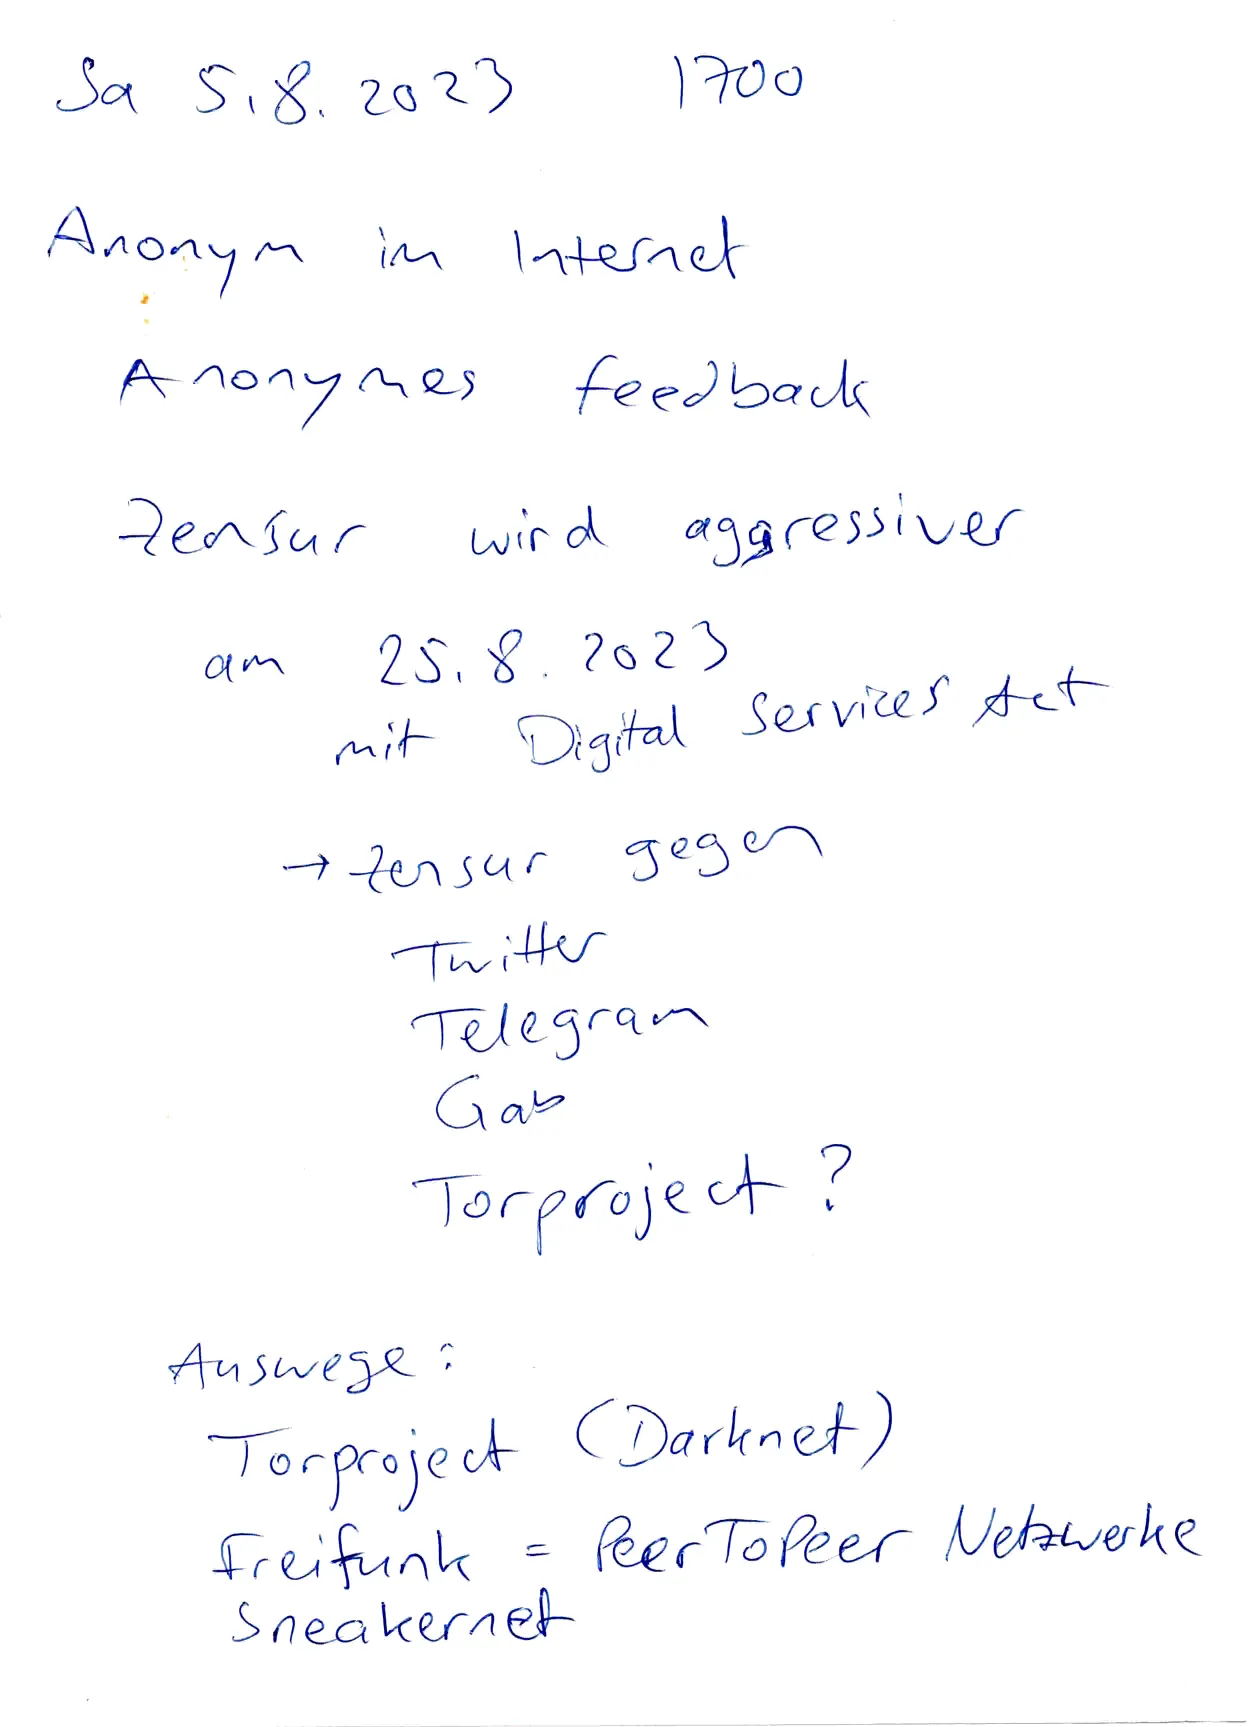 Sa 5.8.2023 1700
Anonym im Internet
Anonymes feedback
Zensur wird aggressiver
am 25.8.2023
mit Digital Services Act
→ Zensur gegen
Twitter
Telegram
Gab
Torproject?
Auswege:
Torproject (Darknet)
Freifunk = PeerToPeer Netzwerke
Sneakernet